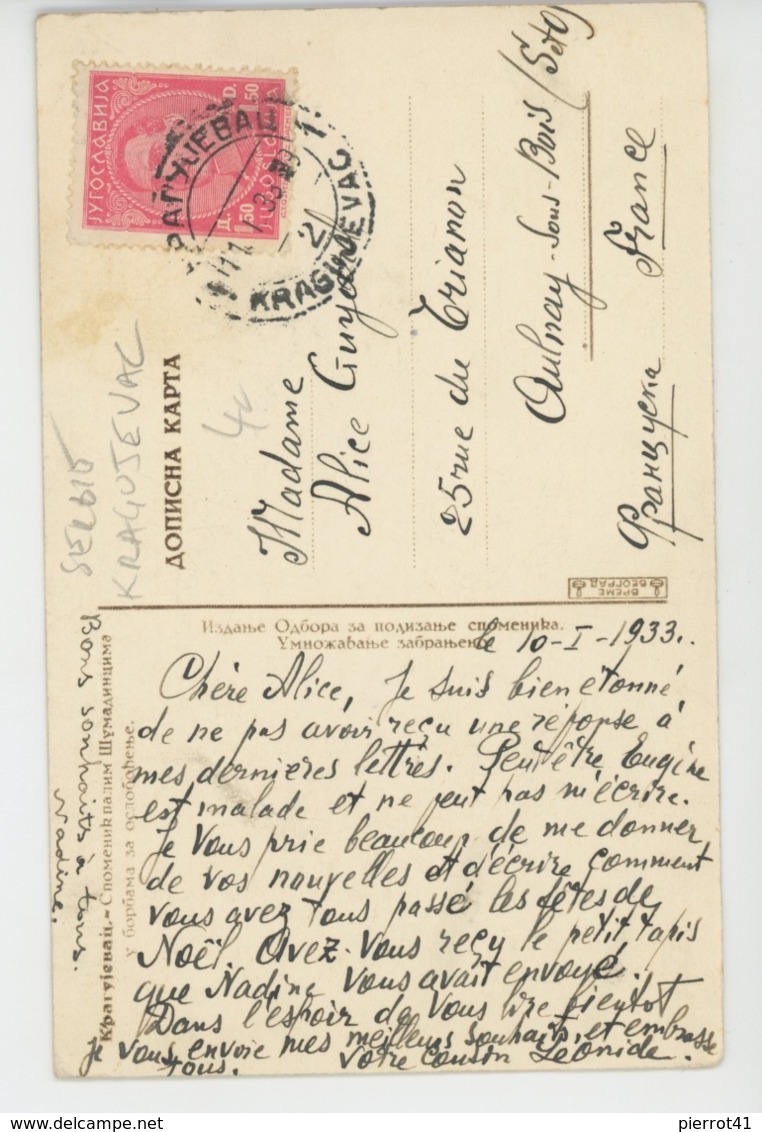 ЈУГОСЛАВИЈА
Д. 1.50 1.50 D.
JUGOSLAVIJA
КРАГУЈЕВАЦ 1
KRAGUJEVAC
ДОПИСНА КАРТА
SERBIE
KRAGUJEVAC
Madame
Alice
25 rue du Trianon
Aulnay-sous-Bois (S et O)
France
Француска
ВРЕМЕ
БЕОГРАД
Издање Одбора за подизање споменика.
Умножавање забрањено
le 10-I-1933.
Chère Alice, Je suis bien etonné
de ne pas avoir reçu une réponse à
mes dernieres lettres. Peut être Eugène
est malade et ne peut pas m'écrire.
Je Vous prie beaucoup de me donner
de vos nouvelles et d'écrire comment
vous avez tous passé les fêtes de
Noël. Avez-Vous reçu le petit tapis
que Nadine Vous avait envoyé.
Dans l'espoir de Vous lire bientot
je vous envoie mes meilleurs souhaits et embrasse
tous. Votre cousin Léonide.
Крагујевац.- Споменик палим Шумадинцима
у борбама за ослобођење.
Bons souhaits à tous.
Nadine.
pierrot41